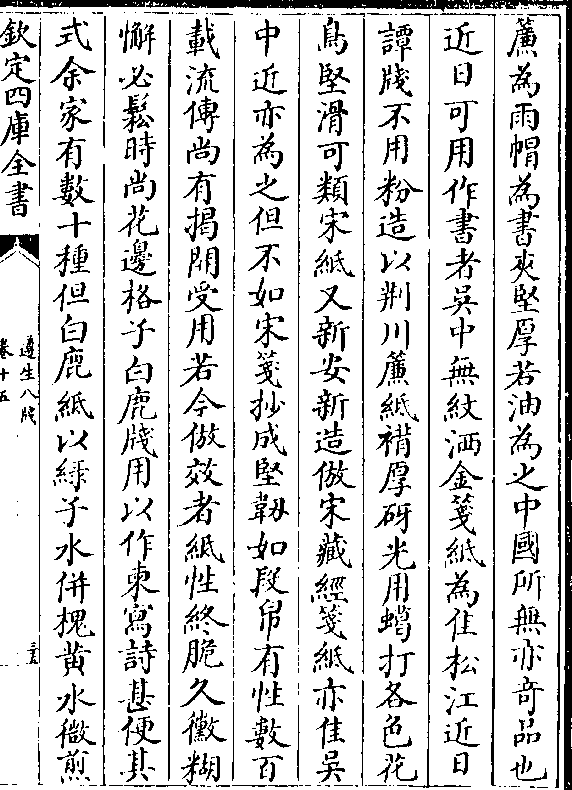 簾為雨帽為書夾堅厚若油為之中國所無亦竒品也
近日可用作書者吳中無紋洒金箋紙為佳松江近日
譚牋不用粉造以荆川簾紙褙厚砑光用蠟打各色花
鳥堅滑可類宋紙又新安新造倣宋藏經箋紙亦佳吳
中近亦為之但不如宋箋抄成堅韌如段帛有性數百
載流傳尚有揭開受用若今倣效者紙性終脆久黴糊
懈必鬆時尚花邊格子白鹿牋用以作柬寫詩甚便其
式余家有數十種但白鹿紙以綠子水併槐黃水微煎
欽定四庫全書
遵生八牋
卷十五